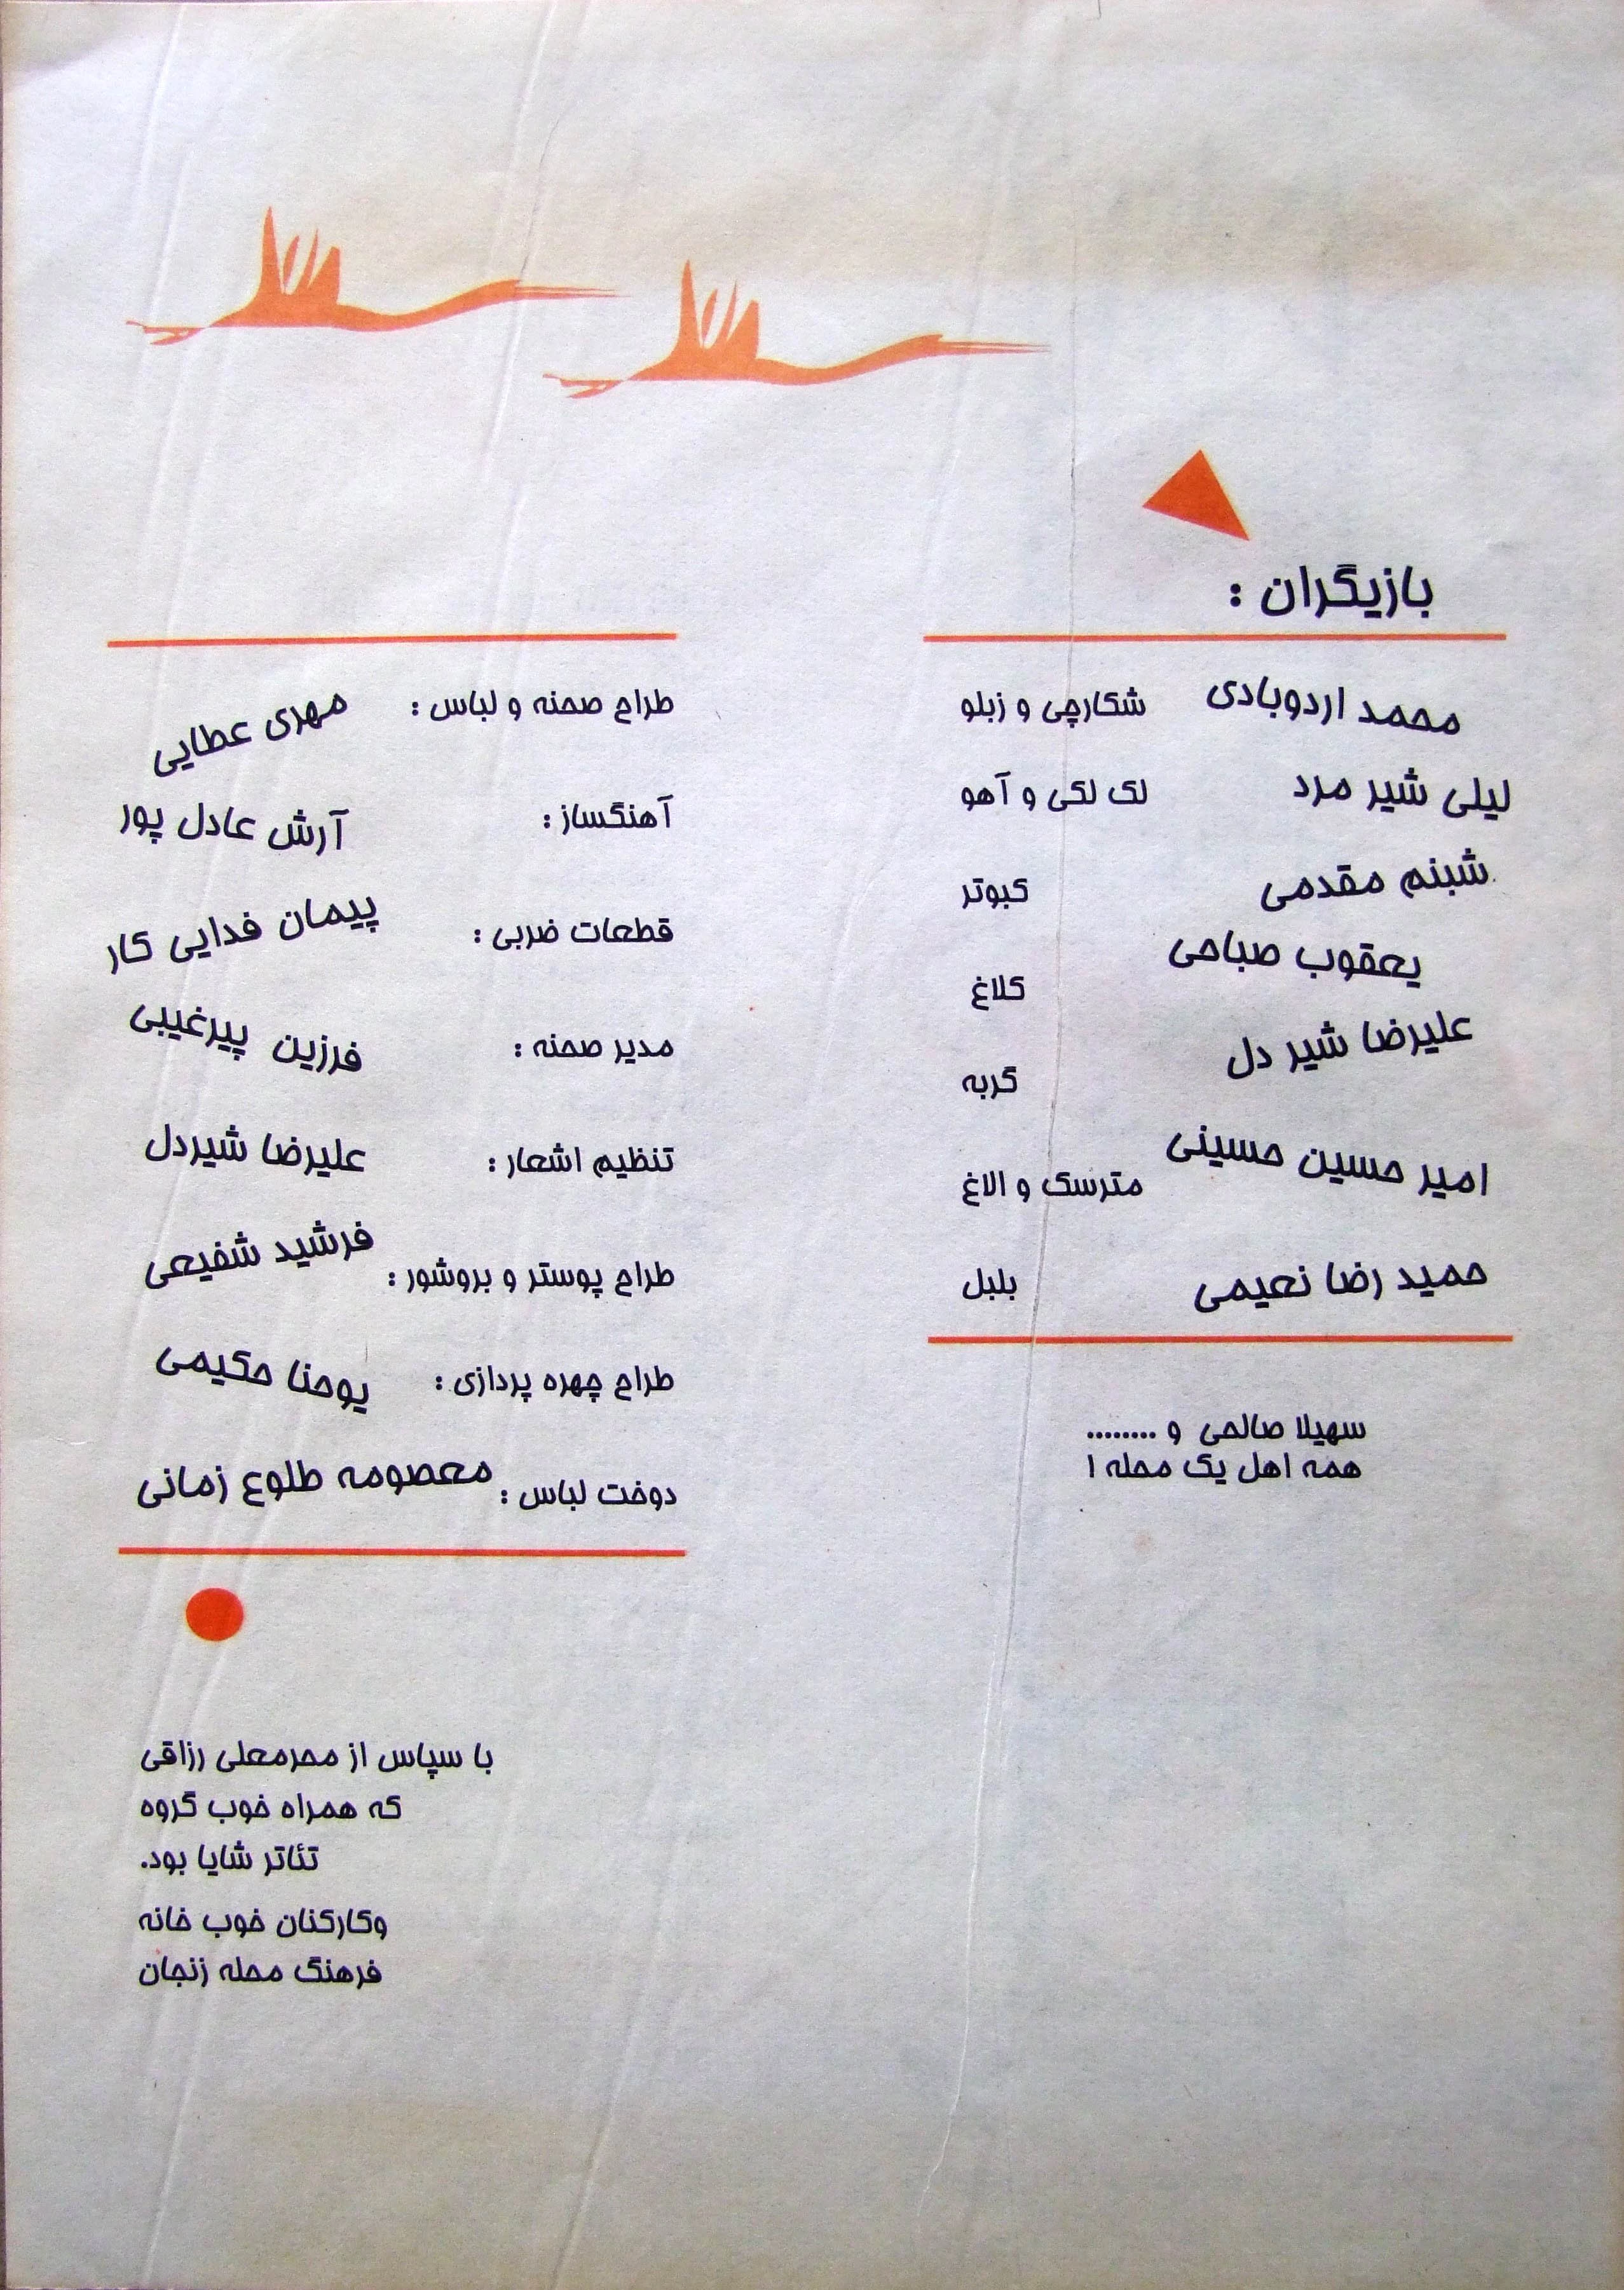 بازیگران :
محمد اردوبادی شکارچی و زبلو
لیلی شیر مرد لک لکی و آهو
شبنم مقدمی کبوتر
یعقوب صباحی کلاغ
علیرضا شیر دل گربه
امیر حسین حسینی مترسک و الاغ
حمید رضا نعیمی بلبل
سهیلا صالحی و ........
همه اهل یک محله !
طراح صحنه و لباس : مهدی عطایی
آهنگساز : آرش عادل پور
قطعات ضربی : پیمان فدایی کار
مدیر صحنه : فرزین پیرغیبی
تنظیم اشعار : علیرضا شیردل
طراح پوستر و بروشور : فرشید شفیعی
طراح چهره پردازی : یوحنا حکیمی
دوخت لباس : معصومه طلوع زمانی
با سپاس از محرمعلی رزاقی
که همراه خوب گروه
تئاتر شایا بود.
وکارکنان خوب خانه
فرهنگ محله زنجان